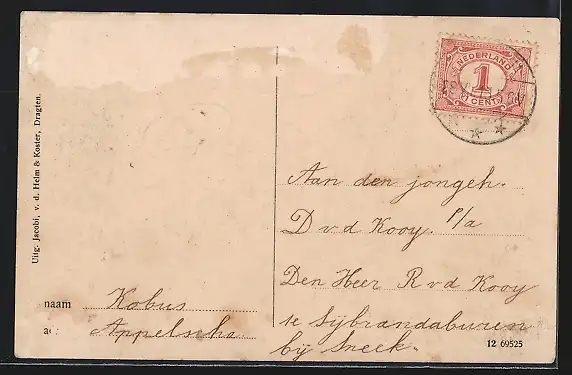 Uitg. Jacobi, v. d. Helm & Koster, Dragten.
NEDERLAND
1
CENT
Aan den jongeh.
D v d Kooy. p/a
Den Heer R v d Kooy
te Sijbrandaburen
bij Sneek.
naam Kobus
Appelscha
12 69525